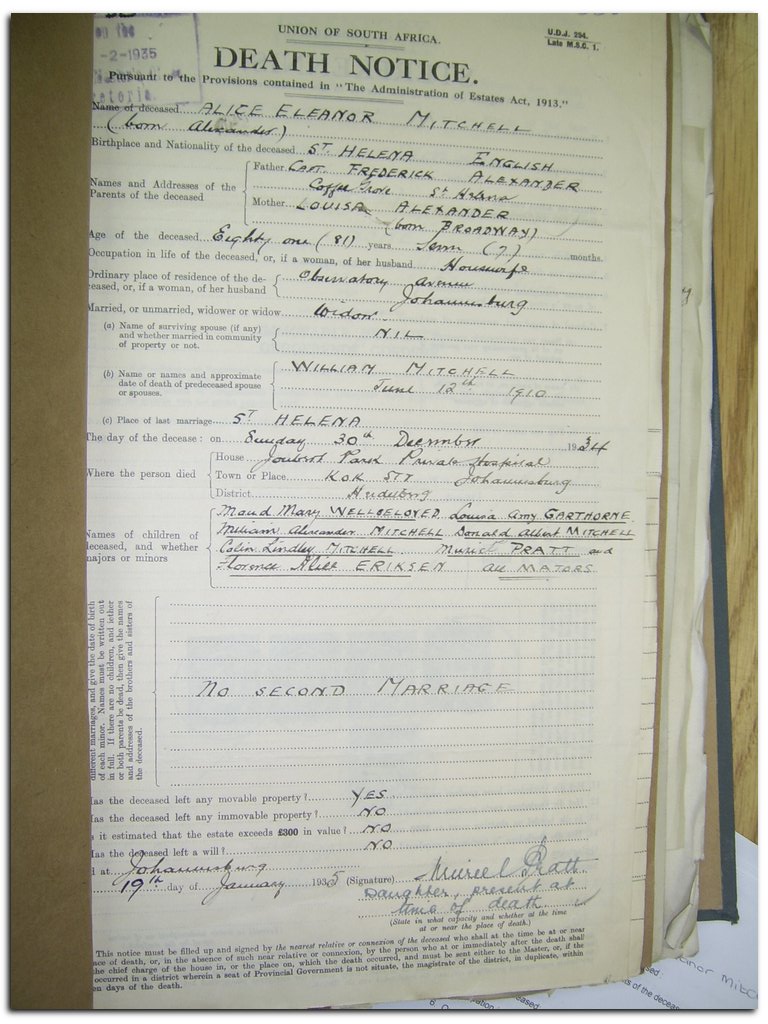 on the
-2-1935
UNION OF SOUTH AFRICA.
U.D.J. 254.
Late M.S.C. 1.
DEATH NOTICE.
Pursuant to the Provisions contained in "The Administration of Estates Act, 1913."
Name of deceased ALICE ELEANOR MITCHELL
(born Alexander)
Birthplace and Nationality of the deceased ST. HELENA ENGLISH
Names and Addresses of the Parents of the deceased
Father CAPT. FREDERICK ALEXANDER
Coffee Grove St Helena
Mother LOUISA ALEXANDER
(born BROADWAY)
Age of the deceased Eighty one (81) years Seven (7) months.
Occupation in life of the deceased, or, if a woman, of her husband Housewife
Ordinary place of residence of the de-
ceased, or, if a woman, of her husband
Observatory Avenue
Johannesburg
Married, or unmarried, widower or widow Widow.
(a) Name of surviving spouse (if any)
and whether married in community
of property or not.
NIL
(b) Name or names and approximate
date of death of predeceased spouse
or spouses.
WILLIAM MITCHELL
June 12th 1910
(c) Place of last marriage ST HELENA
The day of the decease: on Sunday 30th December 1934
Where the person died
House Joubert Park Private Hospital
Town or Place KOK STR Johannesburg
District
Names of children of
deceased, and whether
majors or minors
Maud Mary WELLBELOVED Louisa Amy GARTHORNE
William Alexander MITCHELL Donald Albert MITCHELL
Colin Lindley MITCHELL. Muriel PRATT and
Florence Alice ERIKSEN all MAJORS
different marriages, and give the date of birth
of each minor. Names must be written out
in full. If there are no children, and iether
or both parents be dead, then give the names
and addresses of the brothers and sisters of
the deceased.
NO SECOND MARRIAGE
Has the deceased left any movable property? YES
Has the deceased left any immovable property? NO
Is it estimated that the estate exceeds £300 in value? NO
Has the deceased left a will? NO
d at Johannesburg
19th day of January 1935 (Signature) Muriel Pratt
Daughter, present at
time of death
(State in what capacity and whether at the time
at or near the place of death.)
This notice must be filled up and signed by the nearest relative or connexion of the deceased who shall at the time be at or near
nce of death, or, in the absence of such near relative or connexion, by the person who at or immediately after the death shall
the chief charge of the house in, or the place on, which the death occurred, and must be sent either to the Master, or, if the
occurred in a district wherein a seat of Provincial Government is not situate, the magistrate of the district, in duplicate, within
en days of the death.